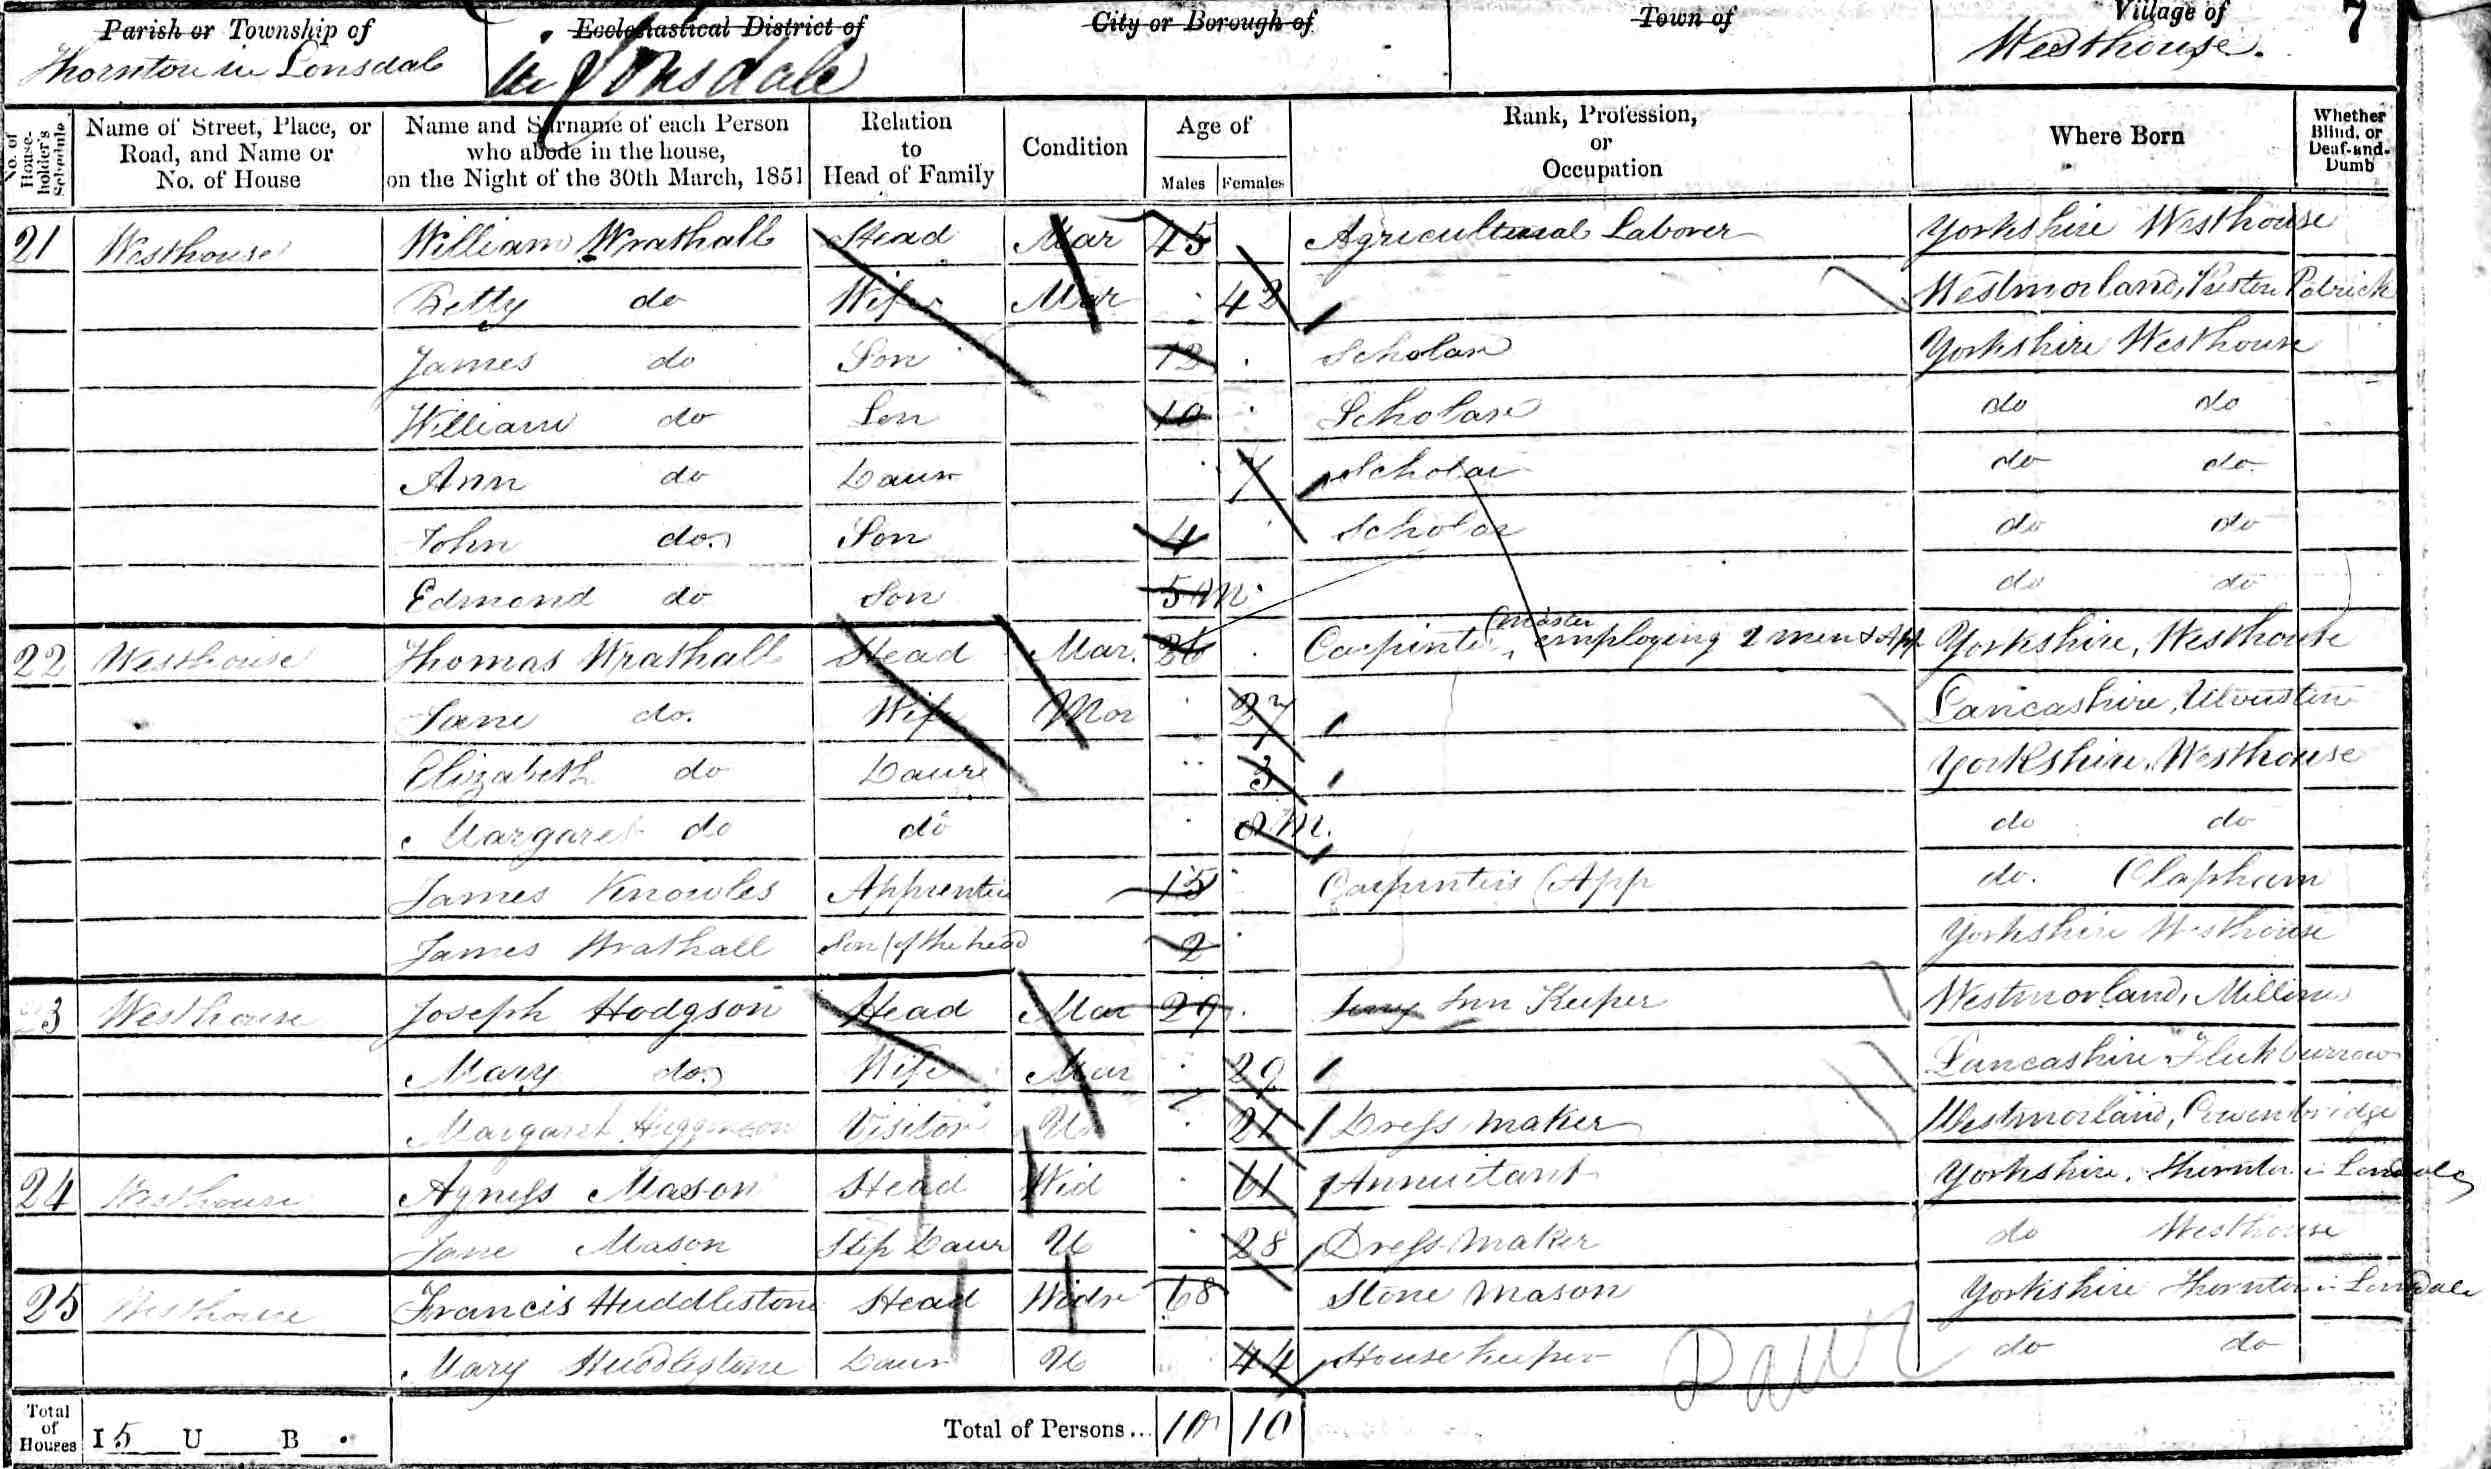 Parish or Township of
Thornton in Lonsdale
Ecclesiastical District of
in Lonsdale
City or Borough of
Town of
Village of
Westhouse.
7
No. of House-holder's Schedule
Name of Street, Place, or Road, and Name or No. of House
Name and Surname of each Person who abode in the house, on the Night of the 30th March, 1851
Relation to Head of Family
Condition
Age of
Males Females
Rank, Profession, or Occupation
Where Born
Whether Blind, or Deaf-and-Dumb
21 Westhouse William Wrathall Head Mar 45 Agricultural Laborer Yorkshire Westhouse
Betty do Wife Mar 42 Westmorland, Preston Patrick
James do Son 12 Scholar Yorkshire Westhouse
William do Son 10 Scholar do do
Ann do Daur 7 Scholar do do
John do. Son 4 Scholar do do
Edmond do Son 5 M do do
22 Westhouse Thomas Wrathall Head Mar. 26 Carpinter (master employing 2 men & App Yorkshire, Westhouse
Jane do. Wife Mar 27 Lancashire, Ulverston
Elizabeth do Daur 3 Yorkshire, Westhouse
Margaret do do 8 M. do do
James Knowles Apprentice 15 Carpinters (App do. Clapham
James Wrathall Son (of the head 2 Yorkshire Westhouse
23 Westhouse Joseph Hodgson Head Mar 29 Inn Keeper Westmorland,
Mary do. Wife Mar 29 Lancashire Flukburrow
Margaret Visitor U 21 Dress maker Westmorland, Cowenbridge
24 Westhouse Agness Mason Head Wid 61 Annuitant Yorkshire, Thornton in Lonsdale
Jane Mason Step Daur U 28 Dress maker do Westhouse
25 Westhouse Francis Huddlestone Head Widr 68 Stone Mason Yorkshire Thornton in Lonsdale
Mary Huddlestone Daur U 44 House keeper do do
Total of Houses I 5 U B
Total of Persons... 10 10